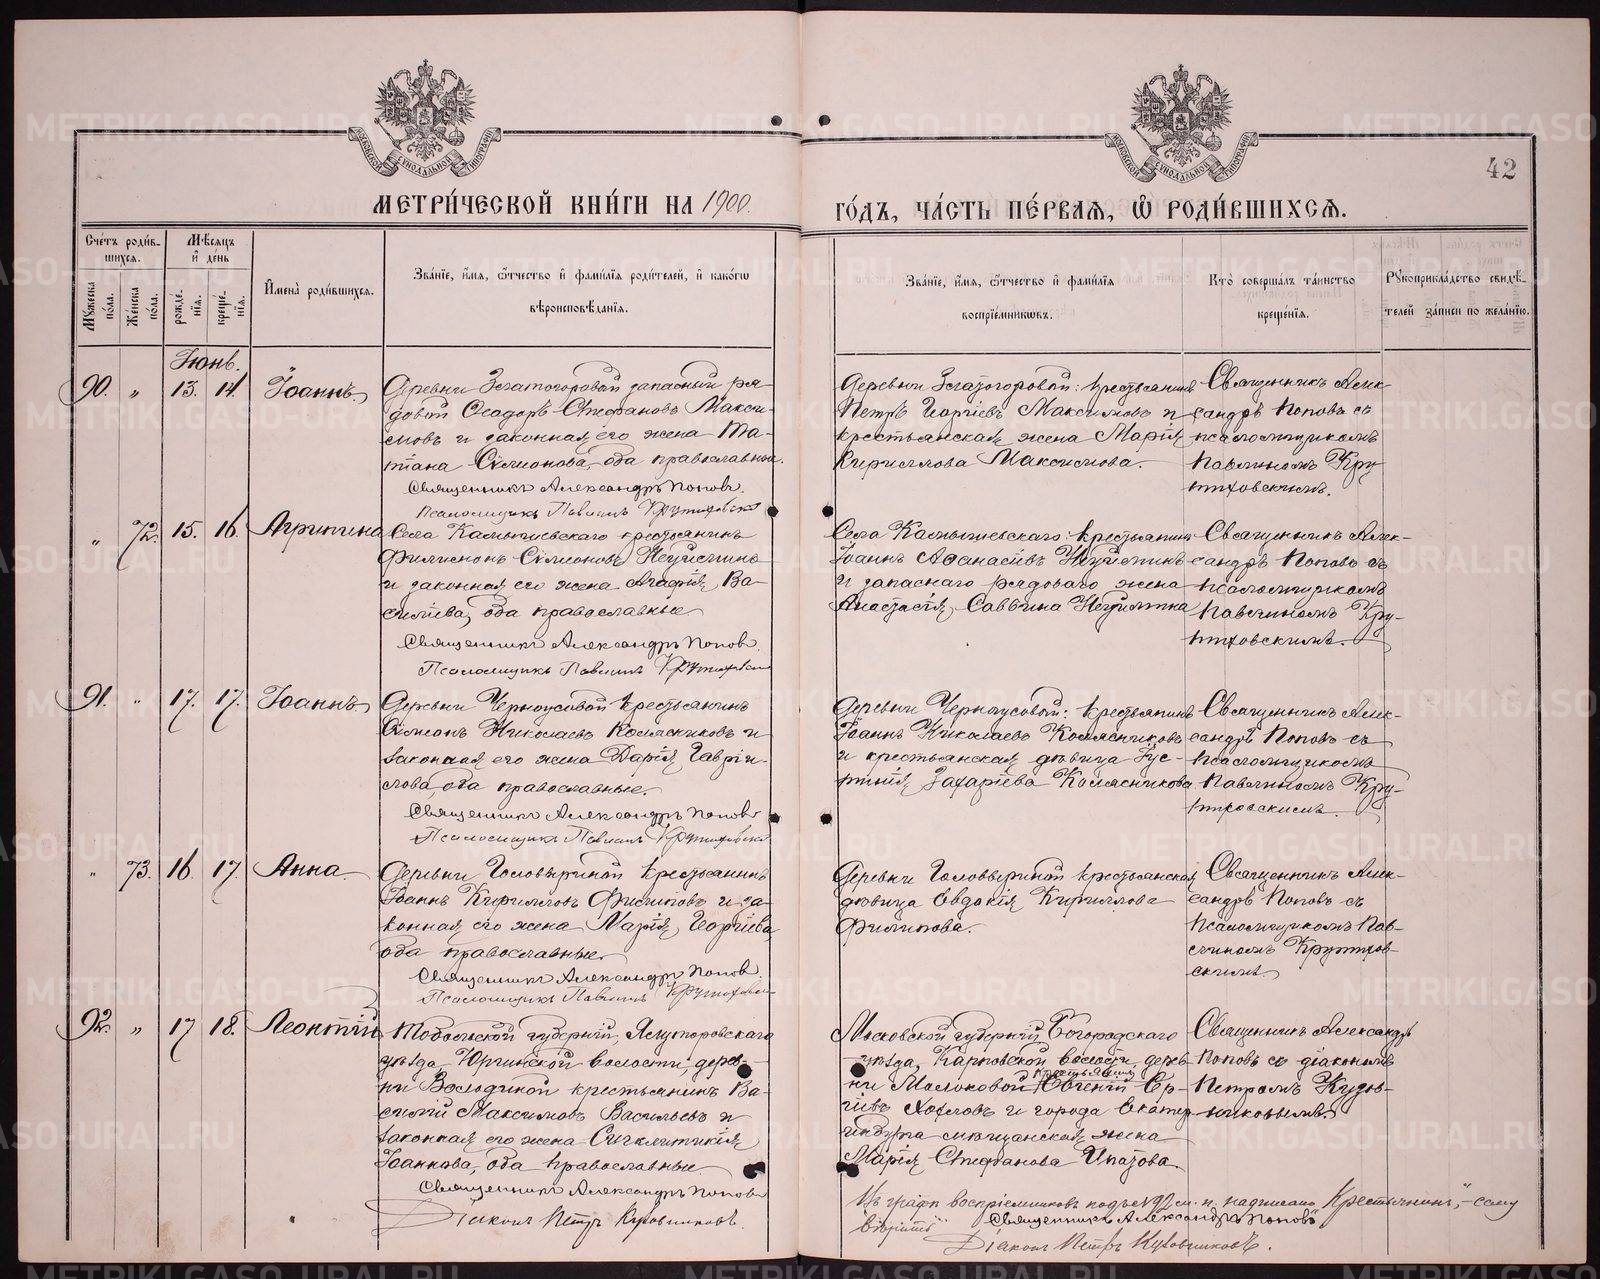 42
МЕТРИ́ЧЕСКОЙ КНИ́ГИ НА 1900.
ГО́ДЪ, ЧА́СТЬ ПЕ́РВАЯ, Ѡ РОДИ́ВШИХСЯ.
Сче́тъ роди́в-
шихся.
Мꙋ́жеска
по́ла.
Же́нска
по́ла.
Мѣ́сяцъ
и де́нь
рожде́-
нїя.
креще́-
нїя.
Имена̀ роди́вшихся.
Зва́нїе, и́мя, ѻ҆́тчество и фами́лїя роди́телей, и како́гѡ
вѣроисповѣ́данїя.
Зва́нїе, и́мя, ѻ҆́тчество и фами́лїя
воспрїе́мникѡвъ.
Кто̀ соверша́лъ та́инство
креще́нїя.
Рꙋкоприкла́дство свидѣ́-
телей за́писи по жела́нїю.
Іюнь.
90. „ 13. 14. Іоаннъ.
Деревни Златогоровой запасный ря-
довой Ѳеодоръ Стефановъ Макси-
мовъ и законная его жена Та-
тіана Симеонова, оба православные.
Священникъ Александръ Поповъ.
Псаломщикъ Павлинъ Крутиховскій
Деревни Златогоровой: крестьянинъ
Петръ Георгіевъ Максимовъ и
крестьянская жена Марія
Кириллова Максимова.
Священникъ Алек-
сандръ Поповъ съ
псаломщикомъ
Павлиномъ Кру-
тиховскимъ.
„ 72. 15. 16. Агрипина
Села Камышевскаго крестьянинъ
Филимонъ Симеоновъ
и законная его жена Агафія Ва-
силіева, оба православные
Священникъ Александръ Поповъ.
Псаломщикъ Павлинъ Крутиховскій
Села Камышевскаго: крестьянинъ
Іоаннъ Аѳанасіевъ
и запаснаго рядоваго жена
Анастасія Саввина
Священникъ Алек-
сандръ Поповъ съ
псаломщикомъ
Павлиномъ Кру-
тиховскимъ.
91. „ 17. 17. Іоаннъ
Деревни Черноусовой крестьянинъ
Симеонъ Николаевъ Колясниковъ и
законная его жена Дарія Гаврі-
лова, оба православные.
Священникъ Александръ Поповъ
Псаломщикъ Павлинъ Крутиховскій
Деревни Черноусовой: крестьянинъ
Іоаннъ Николаевъ Колясниковъ
и крестьянская дѣвица Іус-
тинія Захаріева Колясникова
Священникъ Алек-
сандръ Поповъ съ
псаломщикомъ
Павлиномъ Кру-
тиховскимъ.
„ 73. 16. 17. Анна.
Деревни Головыриной крестьянинъ
Іоаннъ Кирилловъ Филиповъ и за-
конная его жена Марія Георгіева,
оба православные.
Священникъ Александръ Поповъ.
Псаломщикъ Павлинъ Крутиховскій
Деревни Головыриной крестьянская
дѣвица Евдокія Кириллова
Филипова.
Священникъ Алек-
сандръ Поповъ съ
псаломщикомъ Пав-
линомъ Крутихов-
скимъ.
92. „ 17 18. Леонтій
Тобольской губерніи, Ялуторовскаго
уѣзда, Юргинской волости, дерев-
ни Володиной крестьянинъ Ва-
силій Максимовъ Васильевъ и
законная его жена Сигклитикія
Іоаннова, оба православные.
Священникъ Александръ Поповъ
Діаконъ Петръ Кудовниковъ.
Московской губерніи, Богородскаго
уѣзда, Карповской волости, дерев-
крестьянинъ
ни Молоковой Евгеній Ер-
гіевъ Хохловъ и города Екатер-
инбурга мѣщанская жена
Марія Стефанова Ипатова.
Священникъ Александръ
Поповъ съ діакономъ
Петромъ Кудов-
никовымъ.
Въ графѣ воспріемниковъ подъ № 92 м. п. надписано „Крестьянинъ,“ – сему
вѣрить. Священникъ Александръ Поповъ
Діаконъ Петръ Кудовниковъ.
METRIKI.GASO-URAL.RU